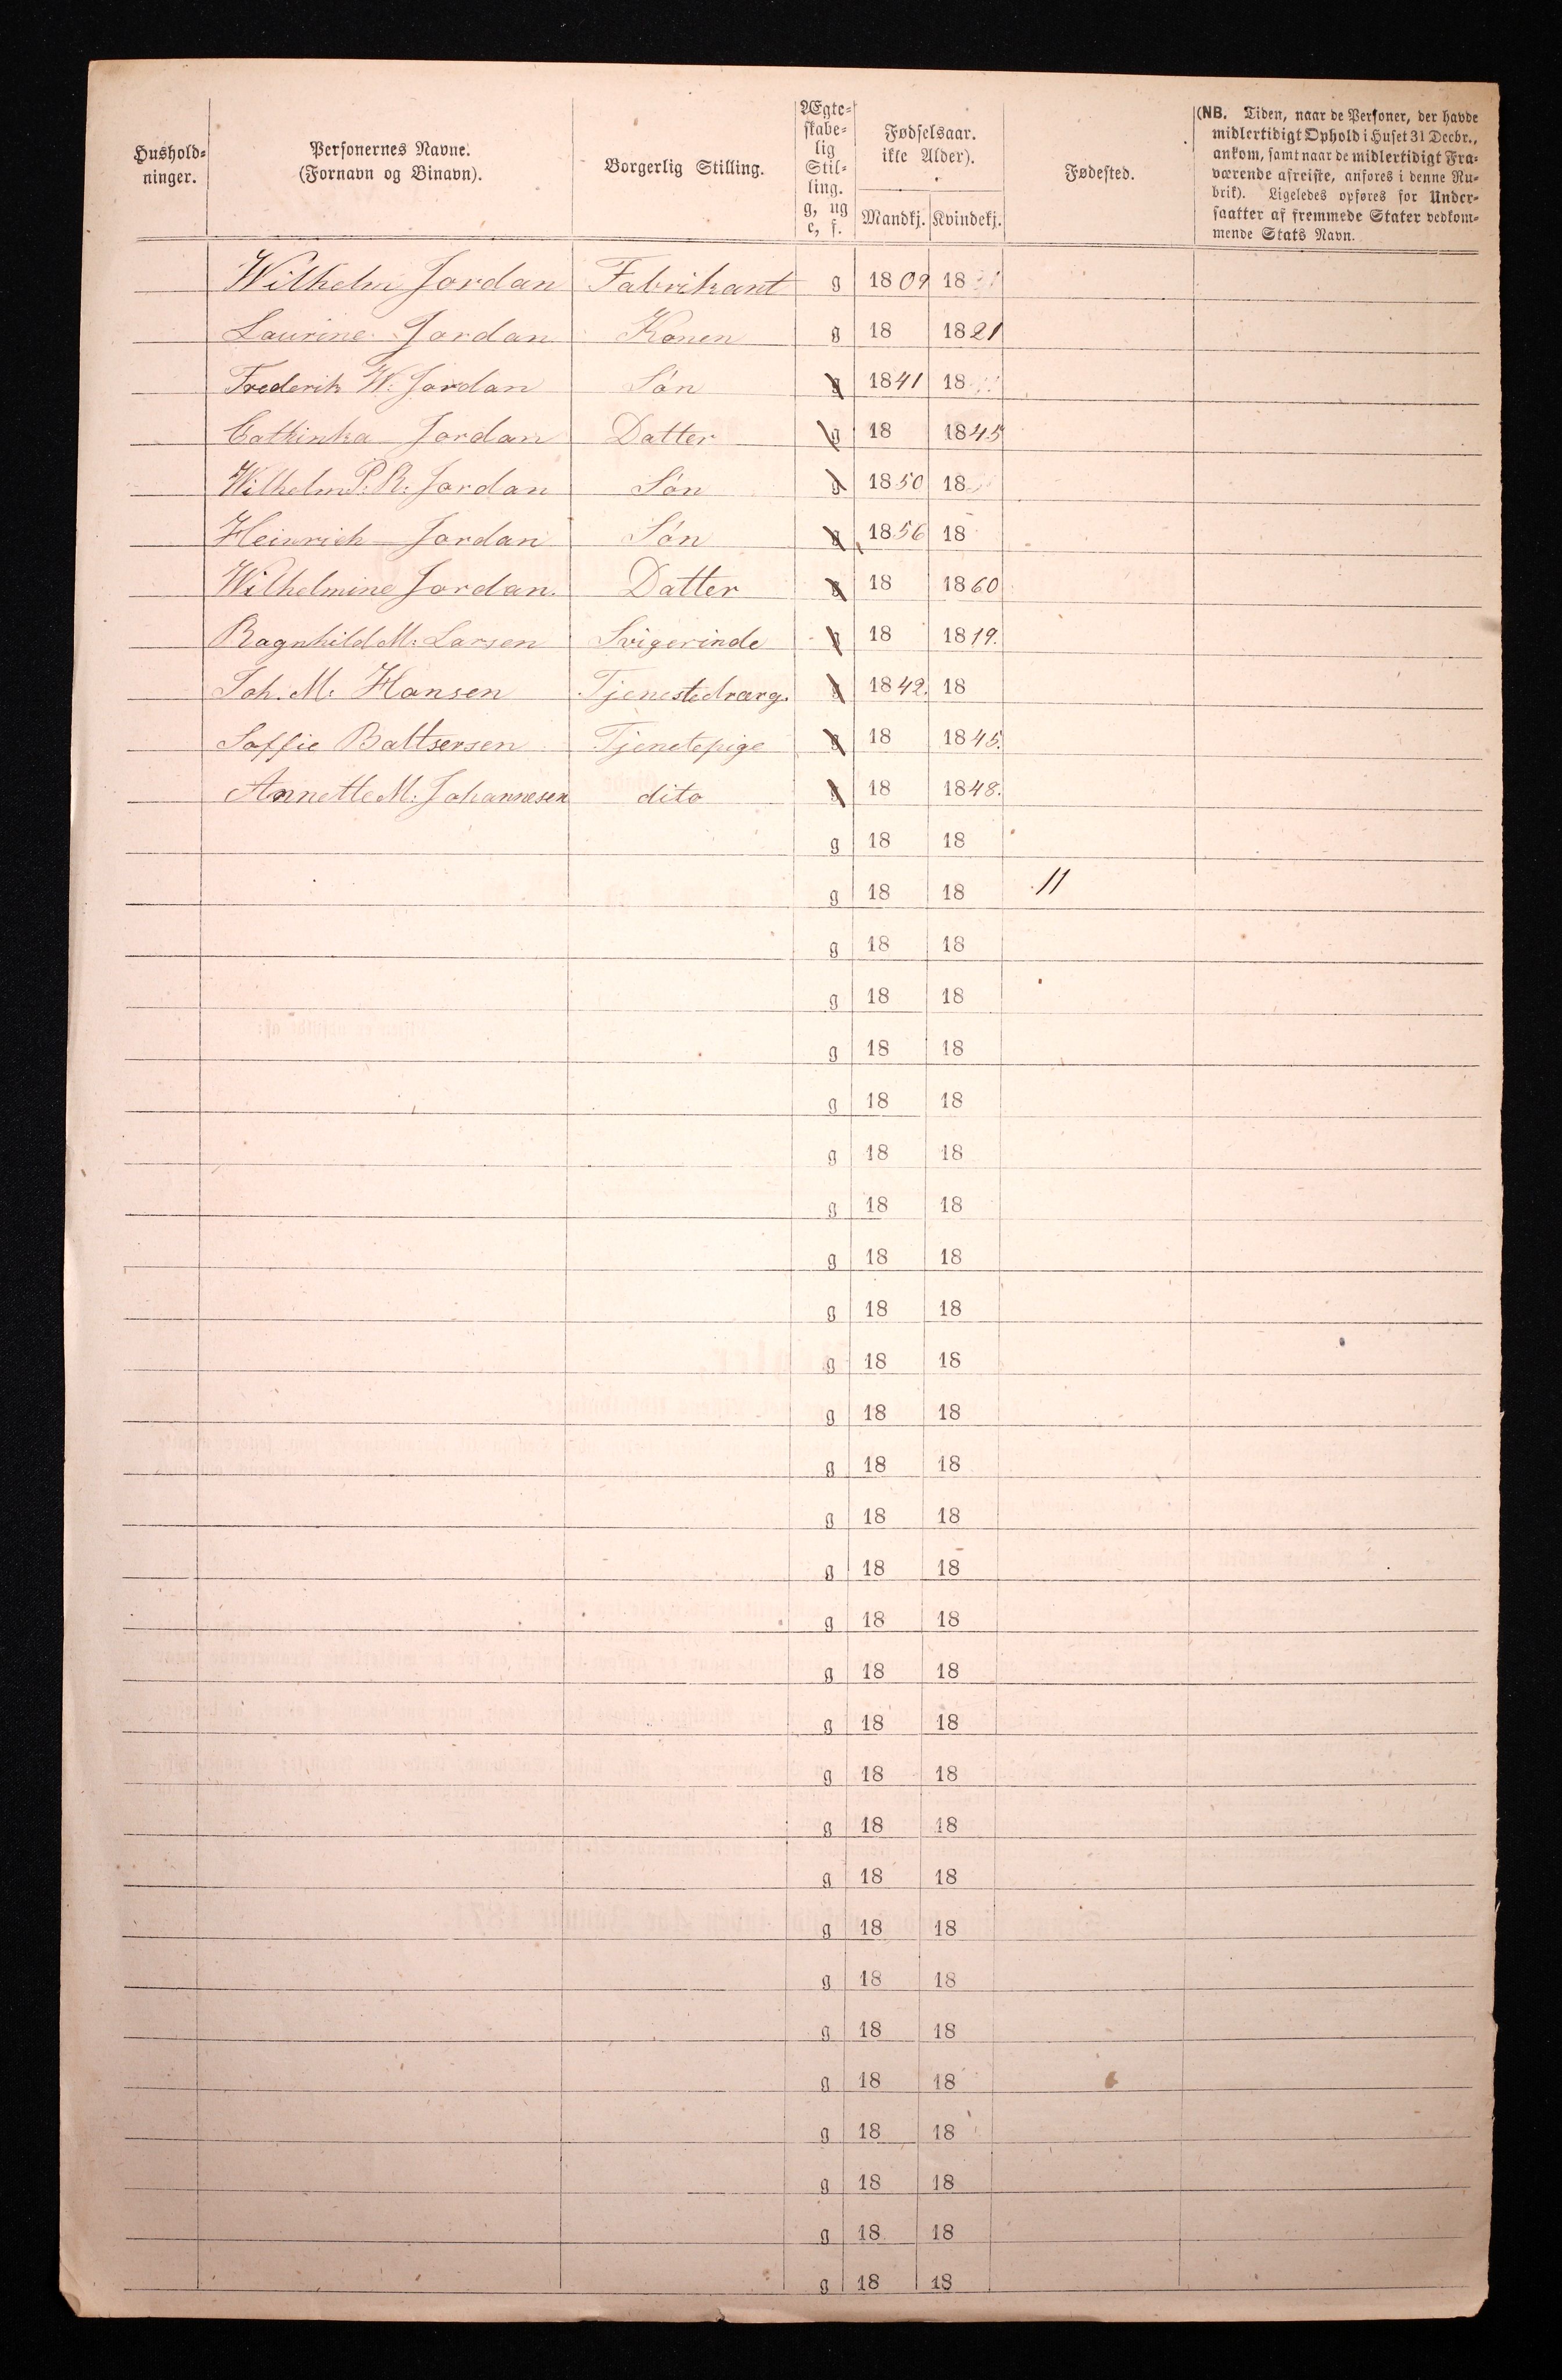 Hushold-
ninger.
Personernes Navne.
(Fornavn og Binavn).
Borgerlig Stilling.
Ægte-
skabe-
lig
Stil-
ling.
g, ug
e, f.
Fødselsaar.
ikke Alder).
Mandkj. Kvindekj.
Fødested.
(NB. Tiden, naar de Personer, der havde
midlertidigt Ophold i Huset 31 Decbr.,
ankom, samt naar de midlertidigt Fra-
værende afreiste, anføres i denne Ru-
brik). Ligeledes opføres for Under-
saatter af fremmede Stater vedkom-
mende Stats Navn.
Wilhelm Jordan Fabrikant g 1809 18
Laurine Jordan Konen g 18 1821
Frederik W. Jordan Són g 1841 18
Cathinka Jordan Datter g 18 1845
Wilhelm P. R. Jordan Són g 1850 18
Heinrich Jordan Són g 1856 18
Wilhelmine Jordan. Datter g 18 1860
Ragnhild M. Larsen Svigerinde g 18 1819.
Joh. M. Hansen Tjenestedræng. g 1842. 18
Soffie Baltsersen Tjenetepige g 18 1845.
Annette M. Johannesen dito g 18 1848.
g 18 18
g 18 18 11
g 18 18
g 18 18
g 18 18
g 18 18
g 18 18
g 18 18
g 18 18
g 18 18
g 18 18
g 18 18
g 18 18
g 18 18
g 18 18
g 18 18
g 18 18
g 18 18
g 18 18
g 18 18
g 18 18
g 18 18
g 18 18
g 18 18
g 18 18
g 18 18
g 18 18
g 18 18
g 18 18